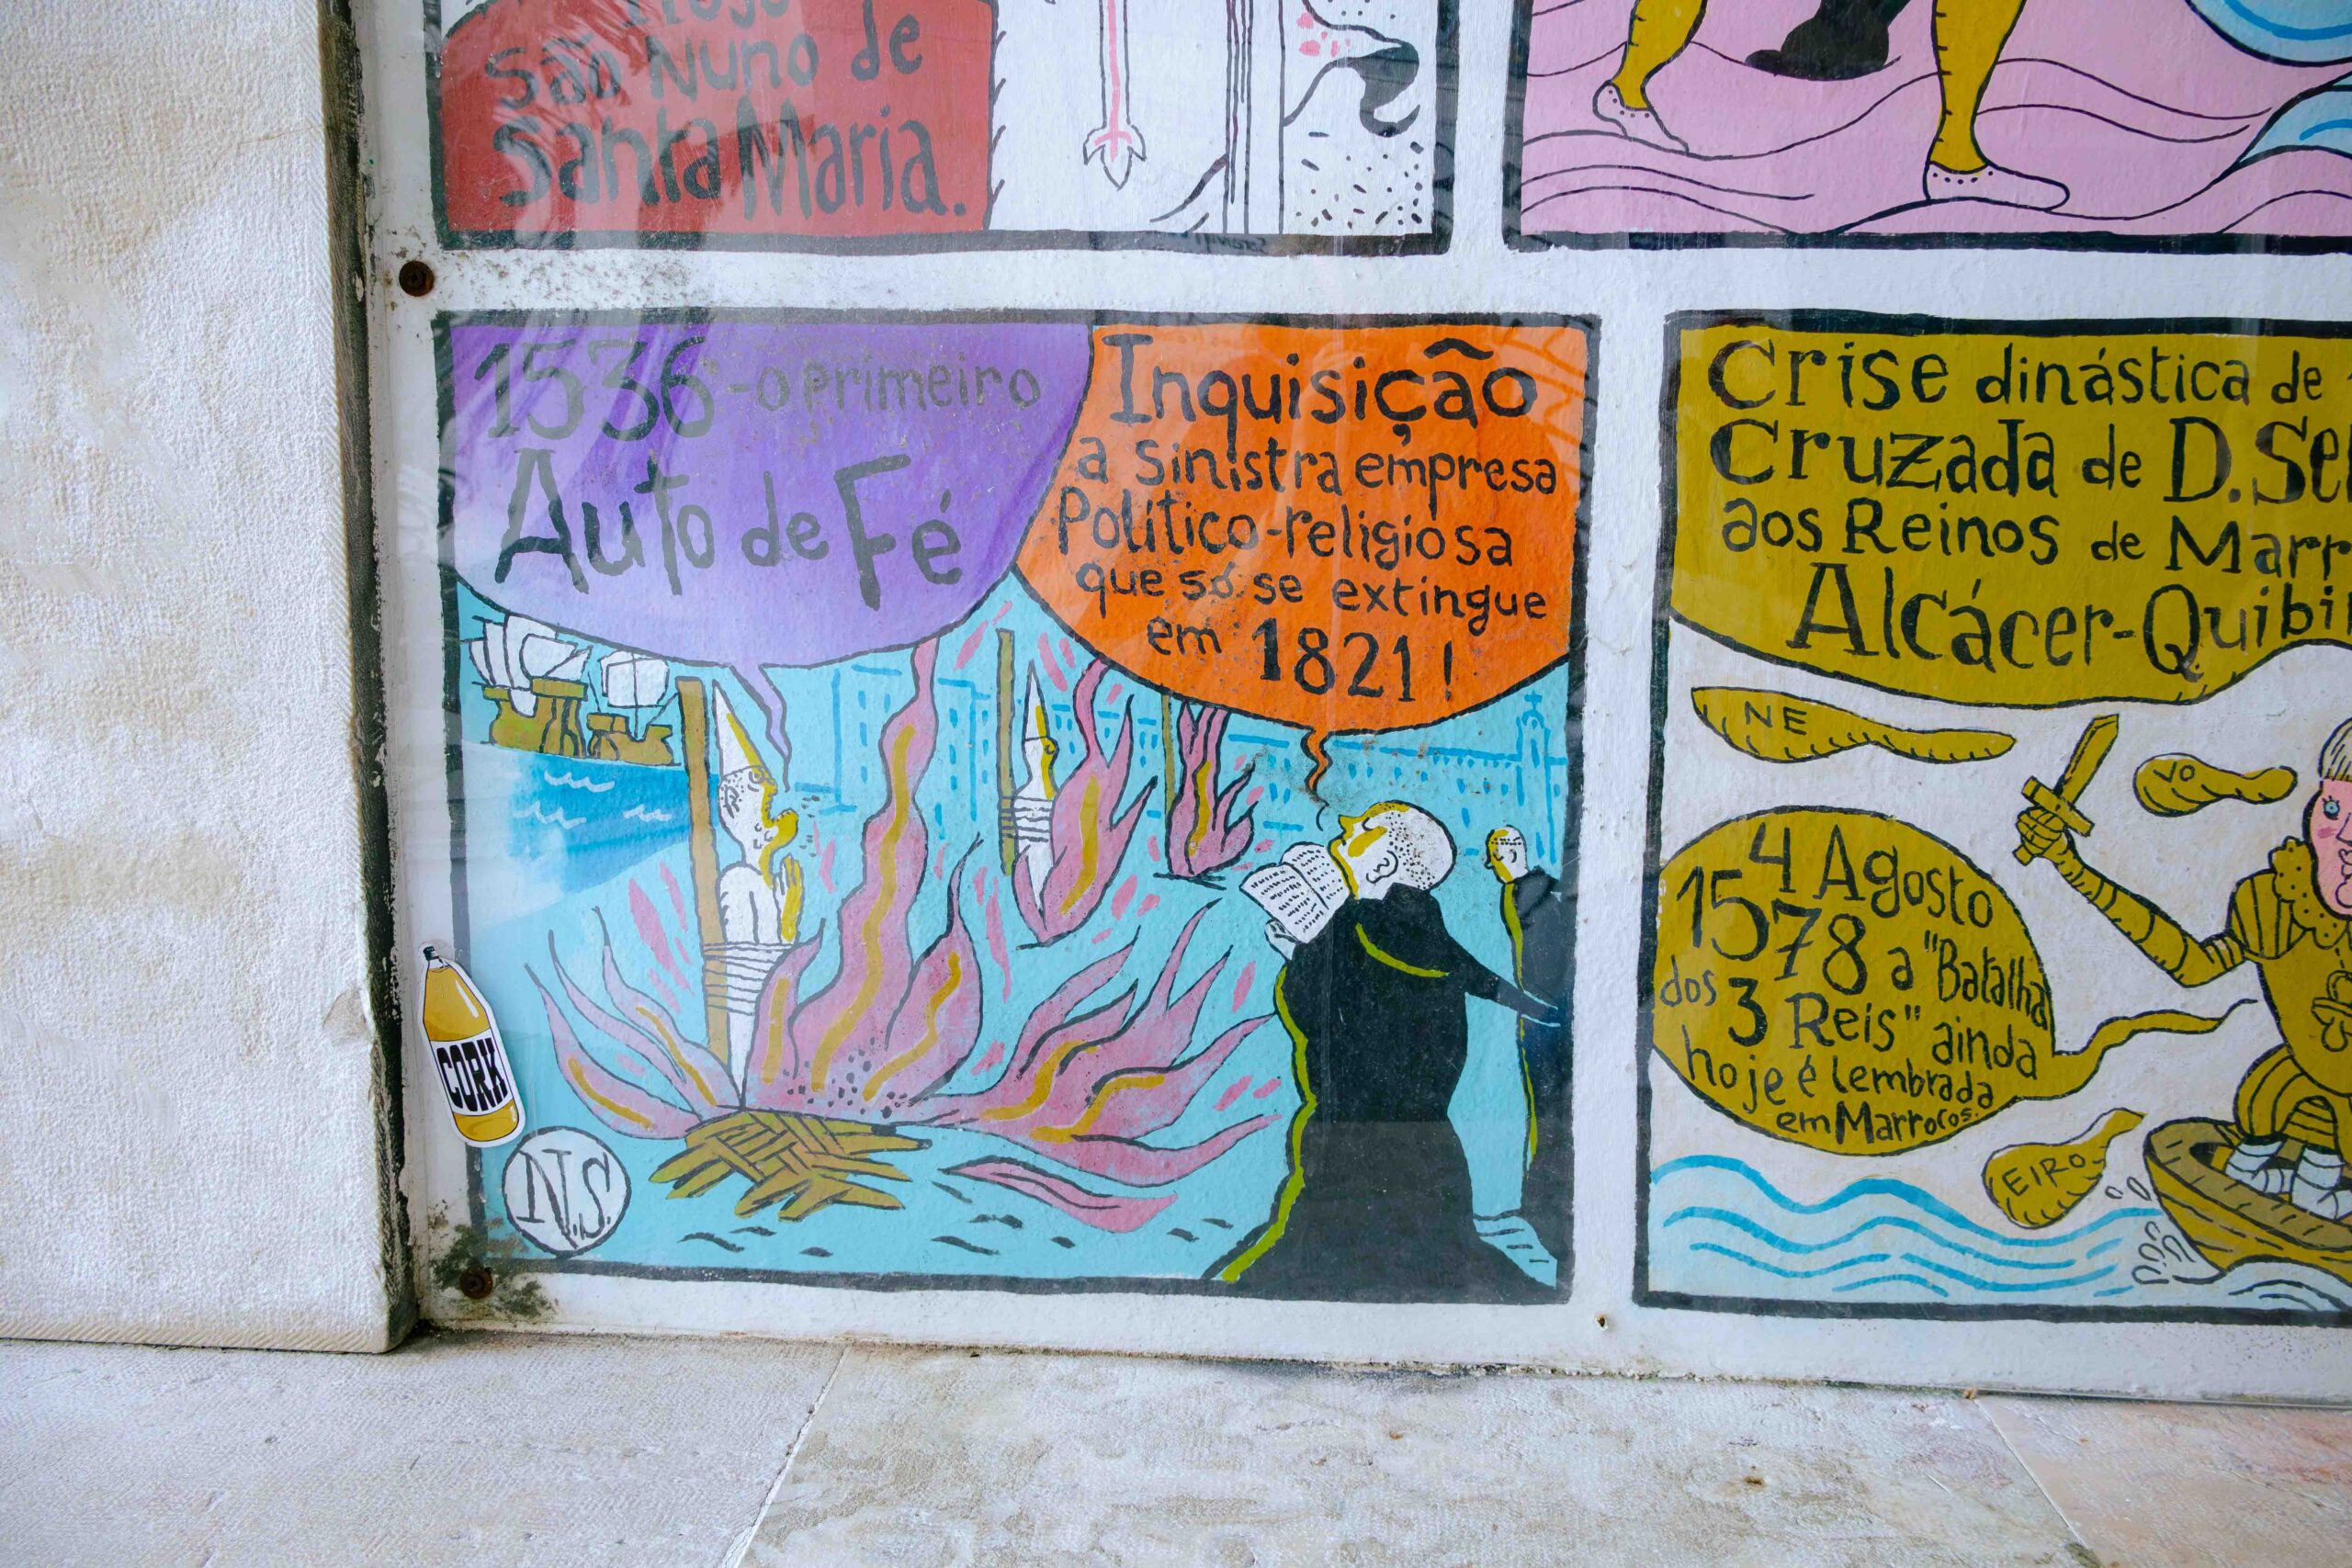 São Nuno de
Santa Maria.
1536-o primeiro
Auto de Fé
Inquisição
a sinistra empresa
Político-religiosa
que só se extingue
em 1821!
CORK
N.S.
Crise dinástica de
Cruzada de D.
aos Reinos de
Alcácer-
NE
VO
EIRO
4 Agosto
1578 a "Batalha
dos 3 Reis" ainda
hoje é lembrada
em Marrocos.